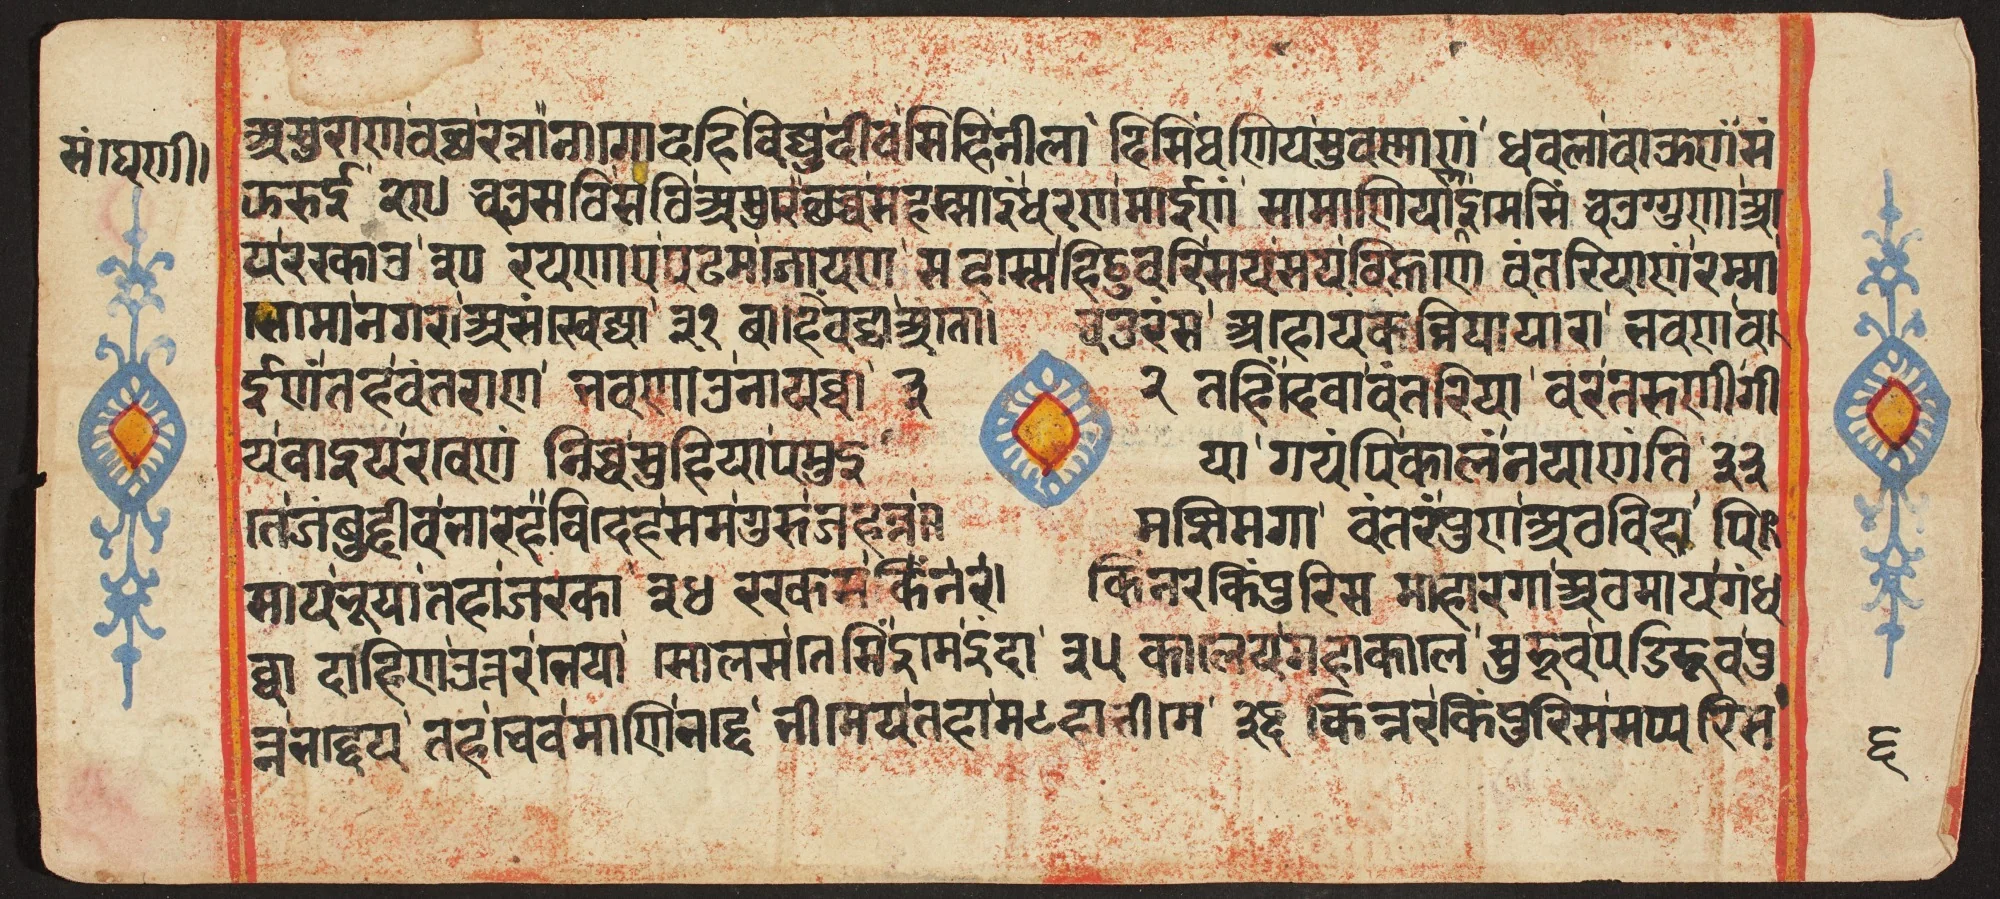 संघेयणी
असुराण वच्छ रत्ता नागोदहि विज्जु दीव सिहि नीला दिसि थणिय सुवन्नाणं धवला वाऊण सं
करुई २९ चउसवि सवि असुरे छच्च सहस्साइं धरणमाईणं सामाणिया इमेसिं चउग्गुणा आ
यरकाउ ३० रयणाए पढमजोयण सहस्से हिठुवरि सय सय विहूणे वंतरियाणं रम्मा
भोमा नगरा असंखेज्जा ३१ बाहिं वट्टा अंतो चउरंस अहो य कन्नियायारा भवणव
ईणं तह वंतराण भवणाउ नायव्वा ३२ तहिं देवा वंतरिया वर तरुणी गी
य वाइय रवेणं निच्च सुहिया पमुइ या गयं पि कालं न याणंति ३३
ते जंबुद्दीव भारह विदेह सम गुरु जहन्न मज्झिमगा वंतर पुण अठविहा पि
साय भूया तहा जरका ३४ ररकस किंनर किंनर किंपुरिस माहोरगा अठमा य गंध
व्वा दाहिणउत्तरभेया सोलस तेसिं इमे इंदा ३५ काले य महाकाले सुरूव पडिरूव पु
न्न भद्दे य तह चेव माणि भद्दे भीमे य तहा महाभीमे ३६ किन्नर किंपुरिसे सप्पुरिस
६